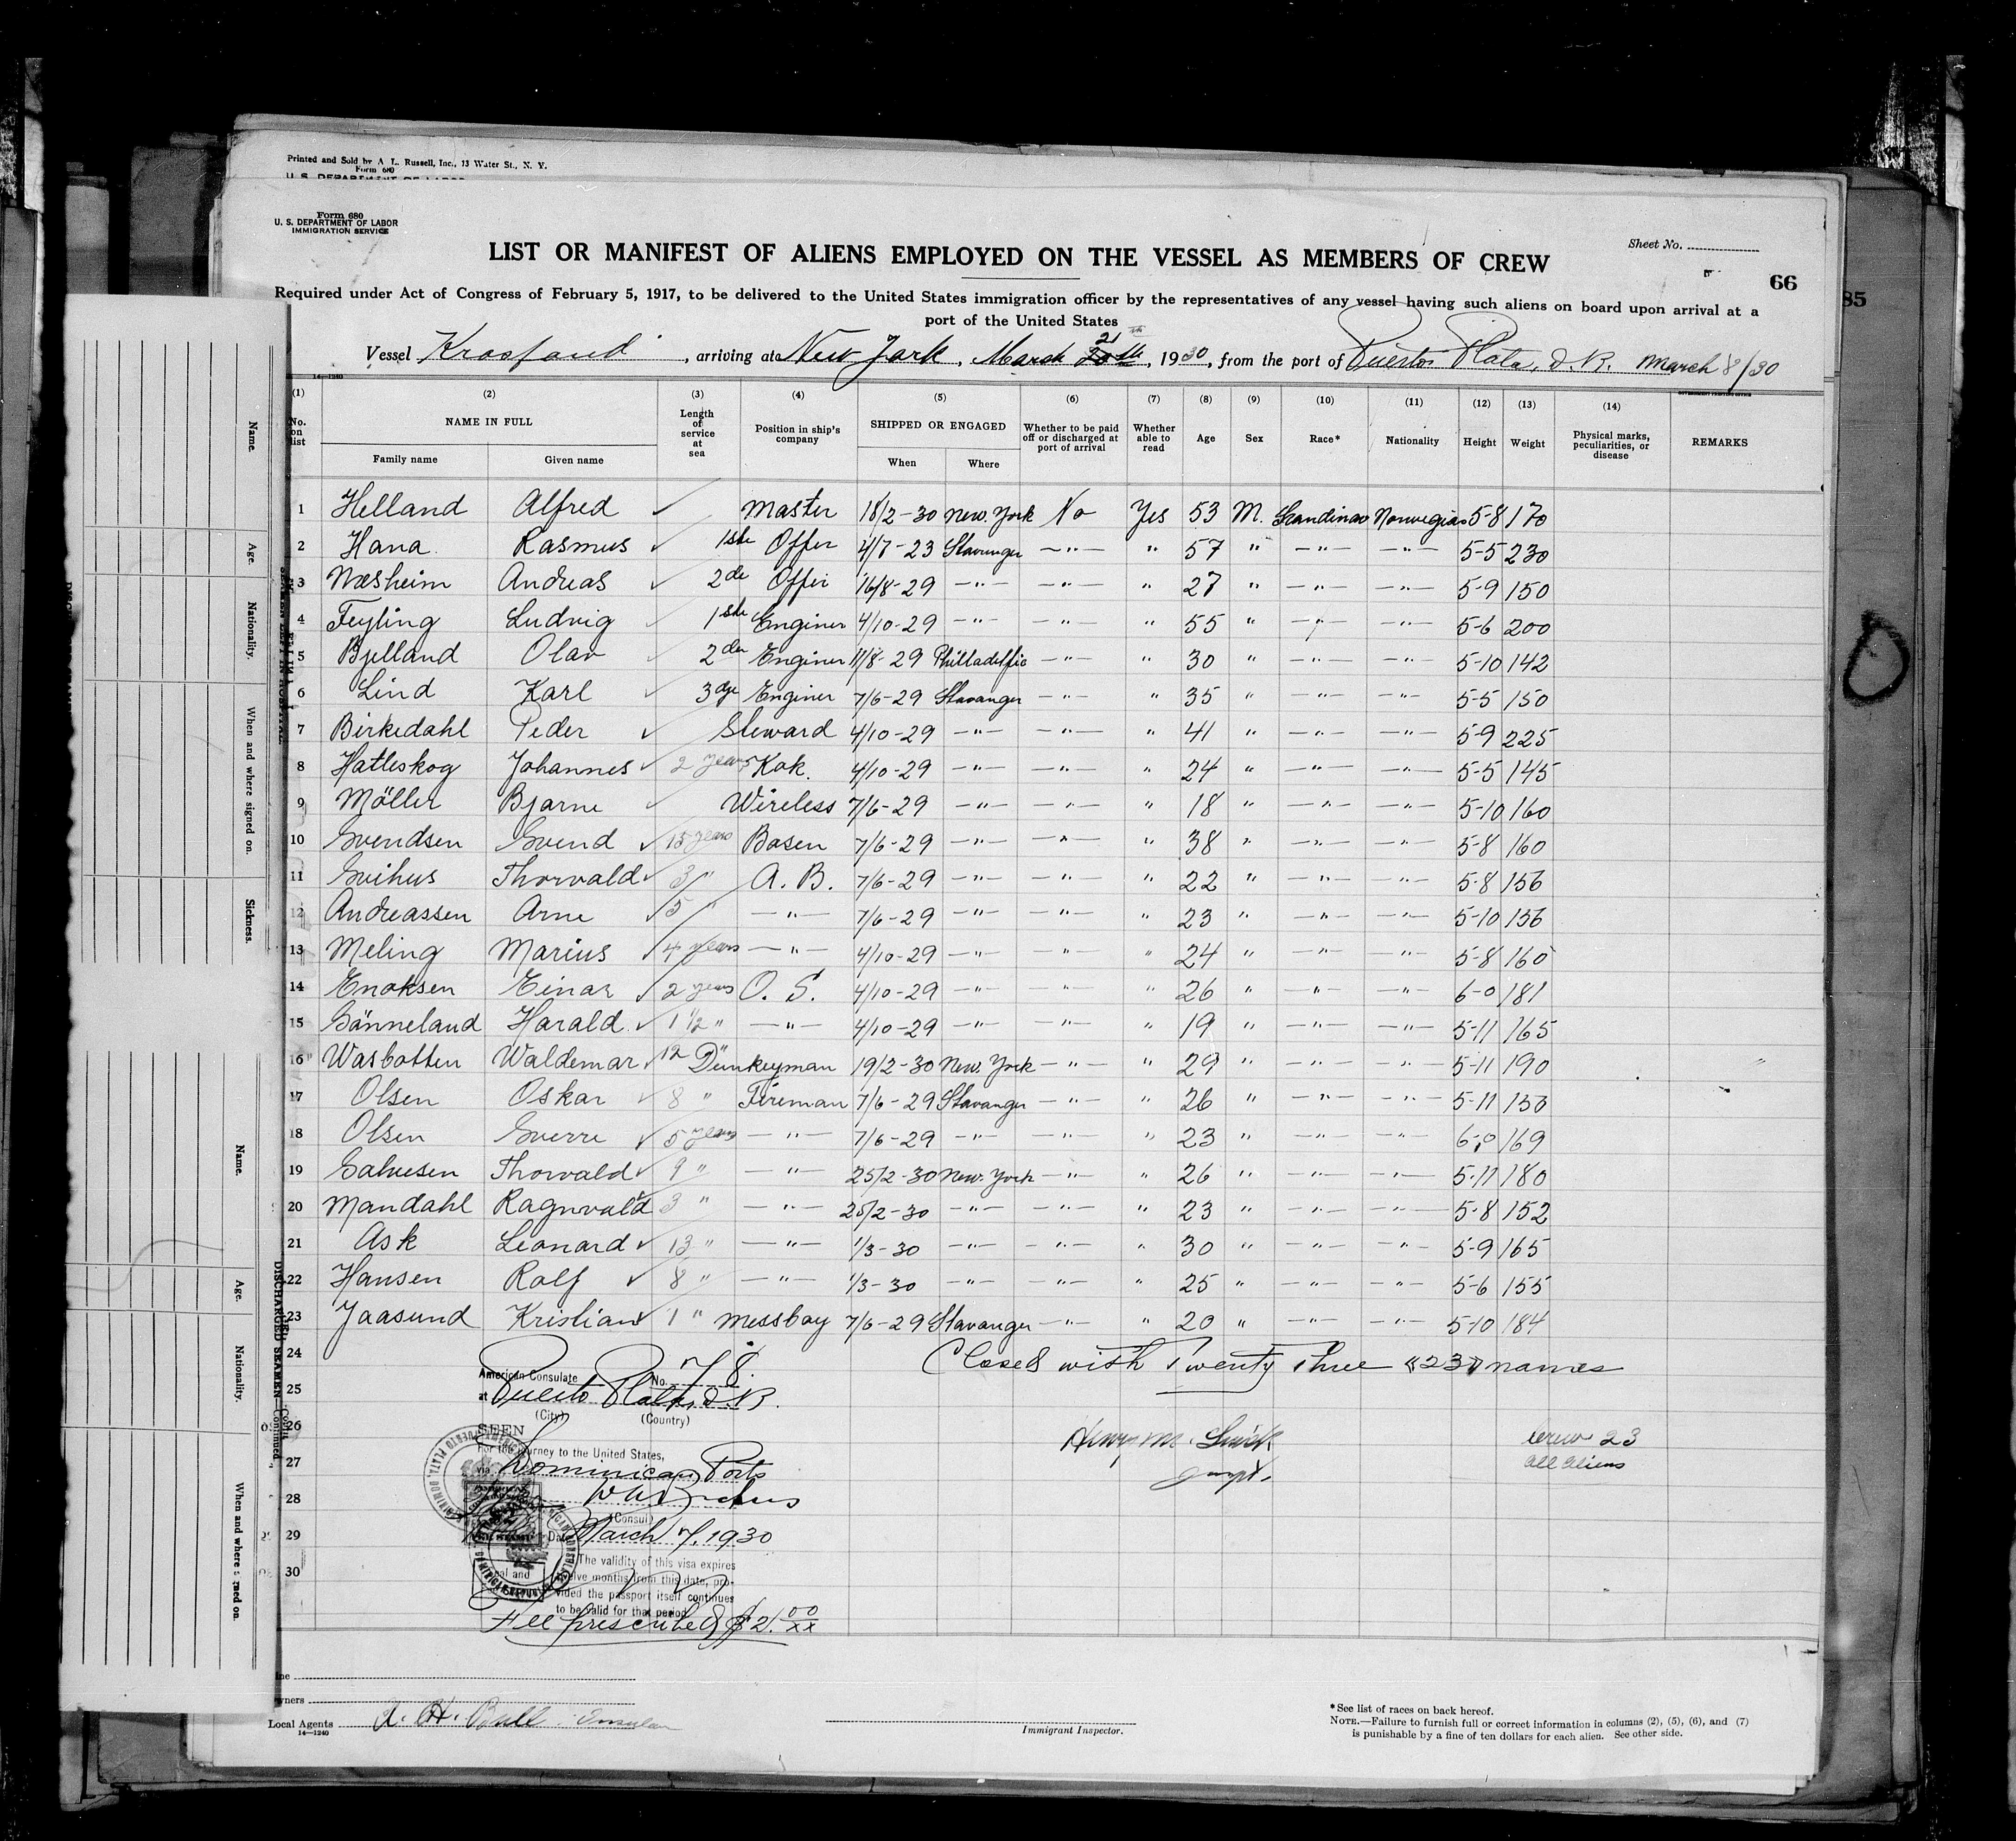 Printed and Sold by A. L. Russell, Inc., 13 Water St., N. Y.
Form 680
U. S. DEPARTMENT OF LABOR
Form 680
U. S. DEPARTMENT OF LABOR
IMMIGRATION SERVICE
Sheet No.
LIST OR MANIFEST OF ALIENS EMPLOYED ON THE VESSEL AS MEMBERS OF CREW
66
85
Required under Act of Congress of February 5, 1917, to be delivered to the United States immigration officer by the representatives of any vessel having such aliens on board upon arrival at a
port of the United States
Vessel Krosfond, arriving at New York, March 21 20th, 1930, from the port of Puerto Plata, D. R. March 8/30
14-1240
(1) (2) (3) (4) (5) (6) (7) (8) (9) (10) (11) (12) (13) (14)
No. on list NAME IN FULL Length of service at sea Position in ship's company SHIPPED OR ENGAGED Whether to be paid off or discharged at port of arrival Whether able to read Age Sex Race* Nationality Height Weight Physical marks, peculiarities, or disease REMARKS
Family name Given name When Where
1 Helland Alfred ✓ Master 18/2-30 New York No Yes 53 M. Scandinav Norwegian 5-8 170
2 Hana Rasmus ✓ 1ste Offer 4/7-23 Stavanger -"- " 57 " -"- -"- 5-5 230
3 Næsheim Andreas ✓ 2de Offir 16/8-29 -"- -"- " 27 " -"- -"- 5-9 150
4 Feyling Ludvig ✓ 1ste Enginer 4/10-29 -"- -"- " 55 " -"- -"- 5-6 200
5 Bjelland Olav ✓ 2den Enginer 11/8-29 Philladelfia -"- " 30 " -"- -"- 5-10 142
6 Lind Karl ✓ 3dje Enginer 7/6-29 Stavanger -"- " 35 " -"- -"- 5-5 150
7 Birkedahl Peder ✓ Steward 4/10-29 -"- -"- " 41 " -"- -"- 5-9 225
8 Hatleskog Johannes ✓ 2 years Kok. 4/10-29 -"- -"- " 24 " -"- -"- 5-5 145
9 Möller Bjarne ✓ Wireless 7/6-29 -"- -"- " 18 " -"- -"- 5-10 160
10 Svendsen Svend ✓ 15 years Bosen 7/6-29 -"- -"- " 38 " -"- -"- 5-8 160
11 Svihus Thorvald ✓ 3 " A. B. 7/6-29 -"- -"- " 22 " -"- -"- 5-8 156
12 Andreassen Arne ✓ 5 " -"- 7/6-29 -"- -"- " 23 " -"- -"- 5-10 156
13 Meling Marius ✓ 4 years -"- 4/10-29 -"- " " 24 " -"- -"- 5-8 160
14 Enoksen Einar ✓ 2 years O. S. 4/10-29 -"- -"- " 26 " -"- -"- 6-0 181
15 Sönneland Harald ✓ 1 1/2 " -"- 4/10-29 -"- -"- " 19 " -"- -"- 5-11 165
16 Wasbotten Waldemar ✓ 12 " Dunkeyman 19/2-30 New York -"- " 29 " -"- -"- 5-11 190
17 Olsen Oskar ✓ 8 " Fireman 7/6-29 Stavanger -"- " 26 " -"- -"- 5-11 153
18 Olsen Sverre ✓ 5 years -"- 7/6-29 -"- -"- " 23 " -"- -"- 6-0 169
19 Salvesen Thorvald ✓ 9 " -"- 25/2-30 New York -"- " 26 " -"- -"- 5-11 180
20 Mandahl Ragnvald ✓ 3 " -"- 25/2-30 -"- -"- " 23 " -"- -"- 5-8 152
21 Ask Leonard ✓ 13 " -"- 1/3-30 -"- -"- " 30 " -"- -"- 5-9 165
22 Hansen Rolf ✓ 8 " -"- 1/3-30 -"- -"- " 25 " -"- -"- 5-6 155
23 Jaasund Kristian ✓ 1 " Messboy 7/6-29 Stavanger -"- " 20 " -"- -"- 5-10 184
24 Closed with Twenty Three "23" names
American Consulate No. 78
25 at Puerto Plata, D. R.
(City) (Country)
26 SEEN
For the journey to the United States,
27 via Dominican Ports
28
(Consul)
29 Date March 7, 1930
The validity of this visa expires
30 twelve months from this date, provided the passport itself continues
to be valid for that period.
Fee prescribed $2.00/xx
Henry M.
Crew 23
all aliens
Owners
Local Agents A. H. Bull Insular
14-1240
Immigrant Inspector.
*See list of races on back hereof.
NOTE.—Failure to furnish full or correct information in columns (2), (5), (6), and (7)
is punishable by a fine of ten dollars for each alien. See other side.
Name.
Age.
Nationality.
When and where signed on.
Sickness.
Name.
Age.
Nationality.
When and where signed on.
DISCHARGED SEAMEN—Continued.